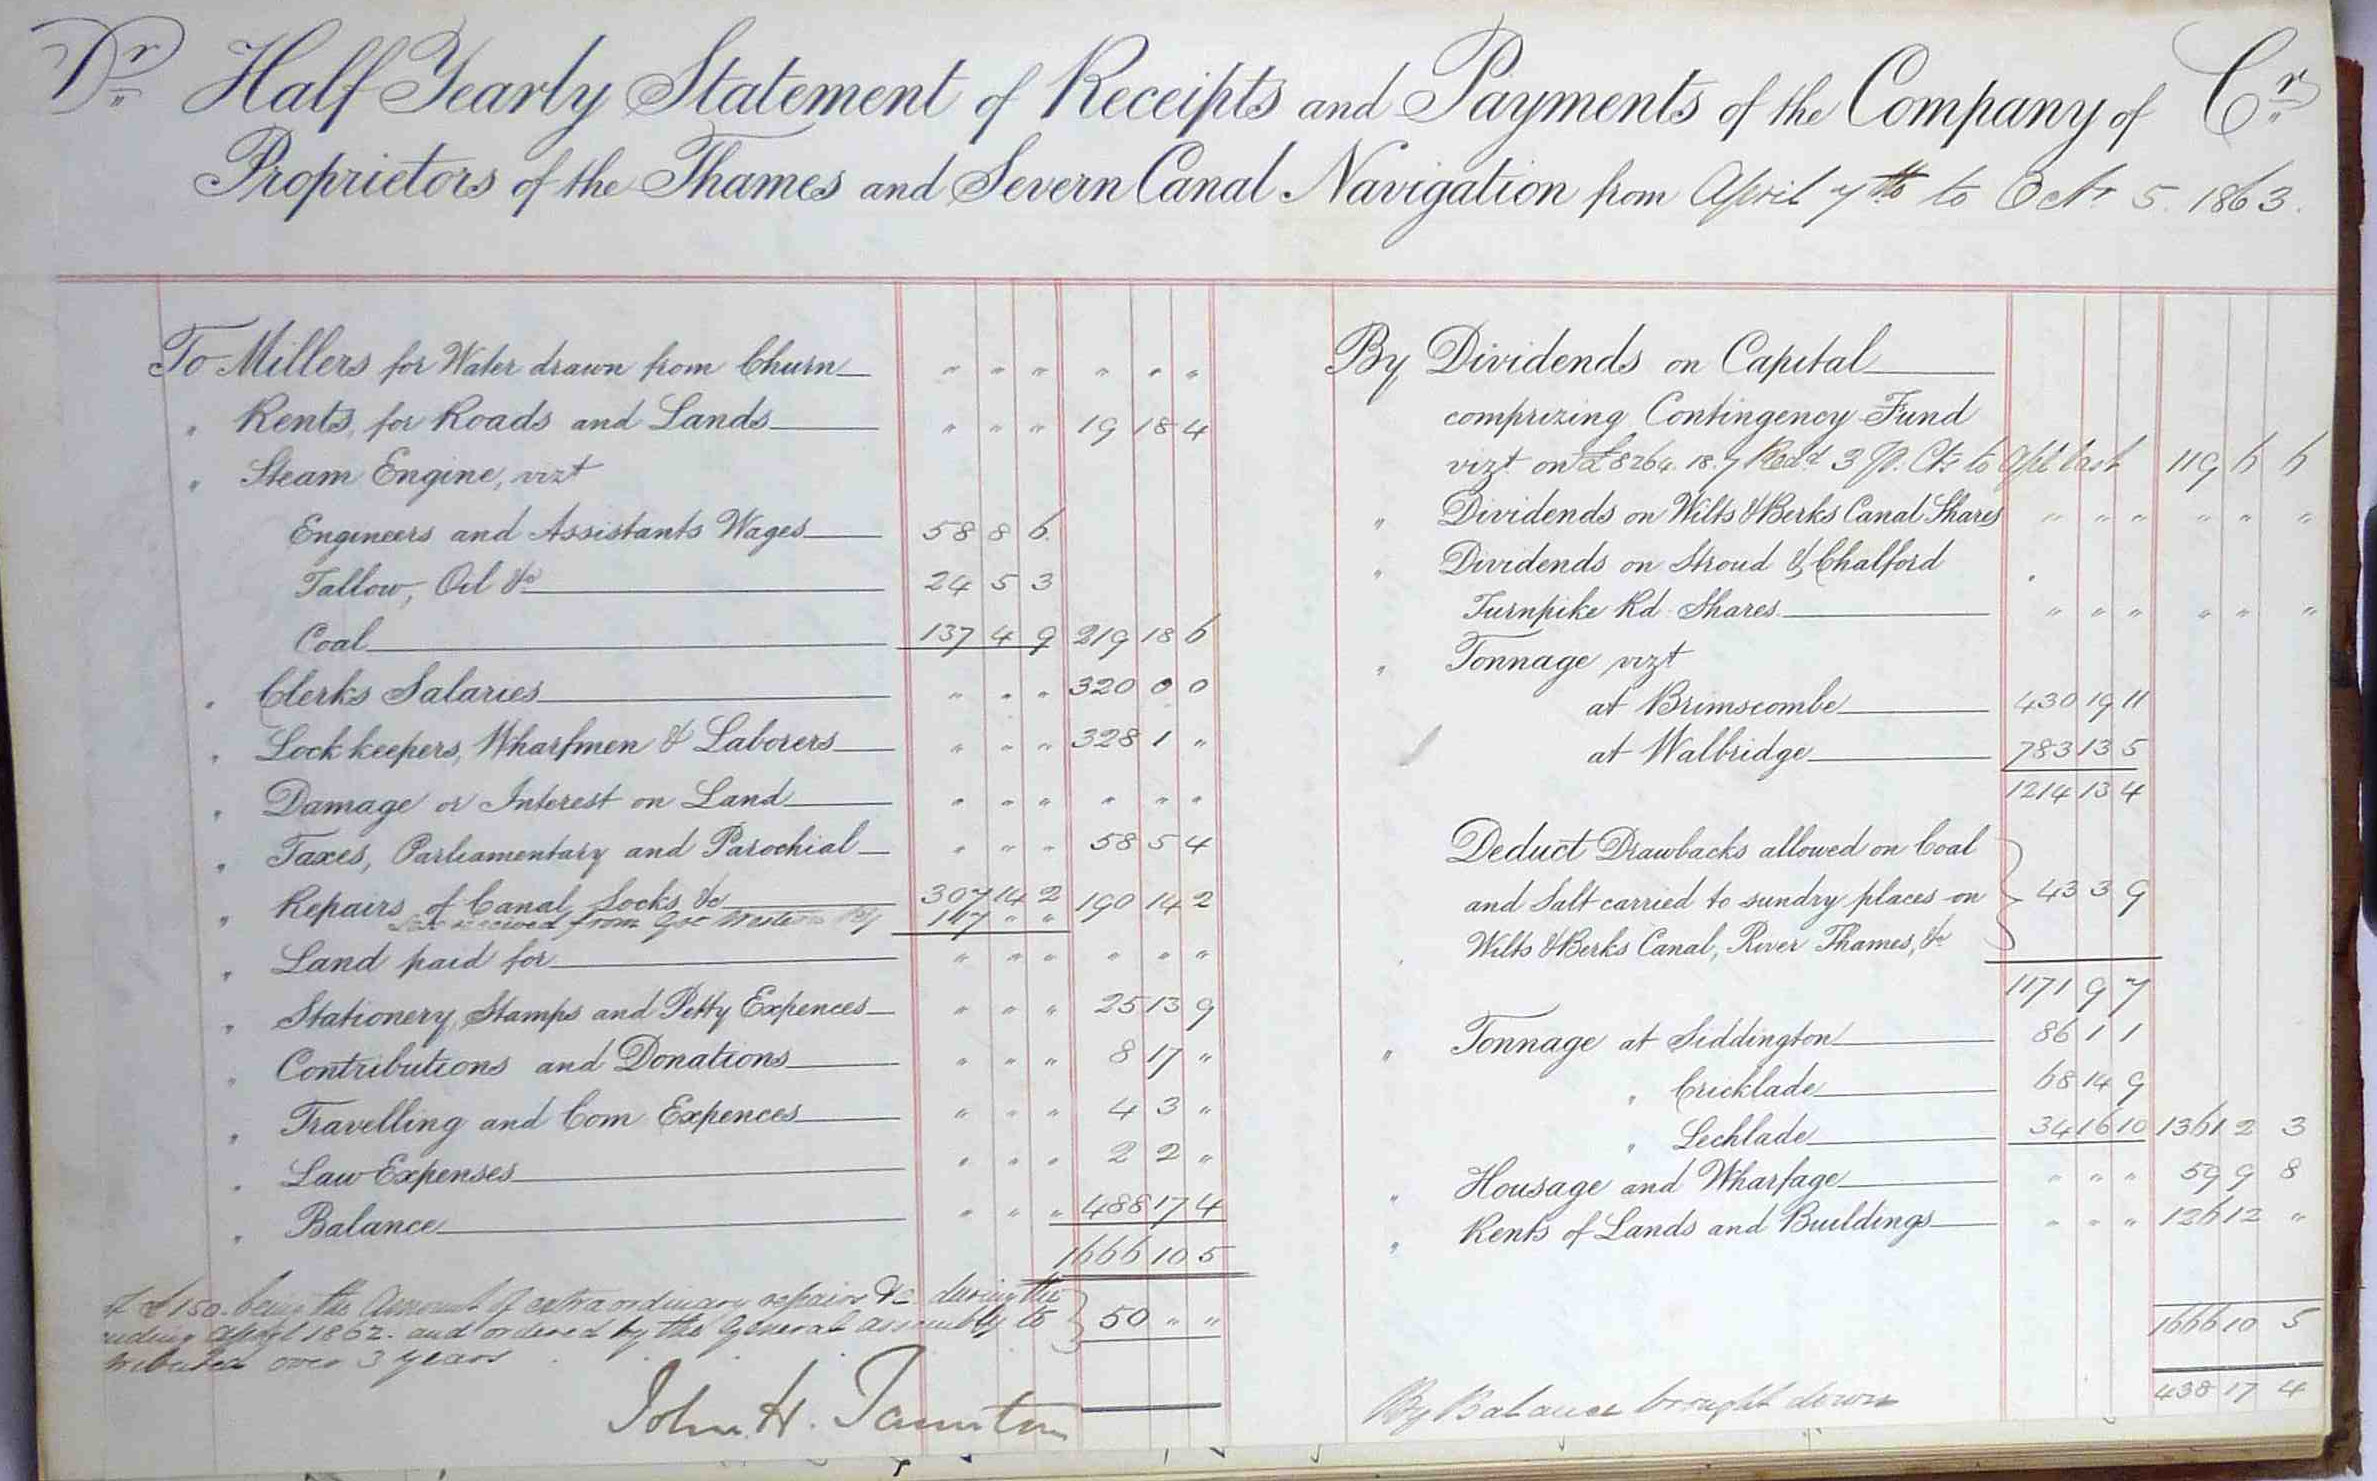 Dr Half Yearly Statement of Receipts and Payments of the Company of Cr
Proprietors of the Thames and Severn Canal Navigation from April 7th to Octr 5. 1863.
To Millers for Water drawn from Churn " " " " " "
" Rents, for Roads and Lands " " " 19 18 4
" Steam Engine, vizt
Engineers and Assistants Wages 58 8 6
Tallow, Oil &c 24 5 3
Coal 137 4 9 219 18 6
" Clerks Salaries " " " 320 0 0
" Lock keepers, Wharfmen & Laborers " " " 328 1 "
" Damage or Interest on Land " " " " " "
" Taxes, Parliamentary and Parochial " " " 58 5 4
" Repairs of Canal, Locks &c 307 14 2 190 14 2
received from Gt Western Ry 117 " "
" Land paid for " " " " " "
" Stationery, Stamps and Petty Expences " " " 25 13 9
" Contributions and Donations " " " 8 17 "
" Travelling and Com Expences " " " 4 3 "
" Law Expenses " " " 2 2 "
" Balance " " " 488 17 4
1666 10 5
of £150. being the Amount of extraordinary repairs &c during the
ending April 1862. and ordered by the General assembly to } 50 " "
over 3 years
John H. Taunton
By Dividends on Capital
comprizing Contingency Fund
vizt on £8264. 18. 7 Red'd 3 P. Cts to Apl last 119 6 6
" Dividends on Wilts & Berks Canal Shares " " " " " "
" Dividends on Stroud & Chalford
Turnpike Rd Shares " " " " " "
" Tonnage vizt
at Brimscombe 430 19 11
at Walbridge 783 13 5
1214 13 4
Deduct Drawbacks allowed on Coal
and Salt carried to sundry places on } 43 3 9
Wilts & Berks Canal, River Thames, &c
1171 9 7
" Tonnage at Siddington 86 1 1
" Cricklade 68 14 9
" Lechlade 34 16 10 1361 2 3
" Housage and Wharfage " " " 59 9 8
" Rents of Lands and Buildings " " " 126 12 "
1666 10 5
By Balance brought down 438 17 4